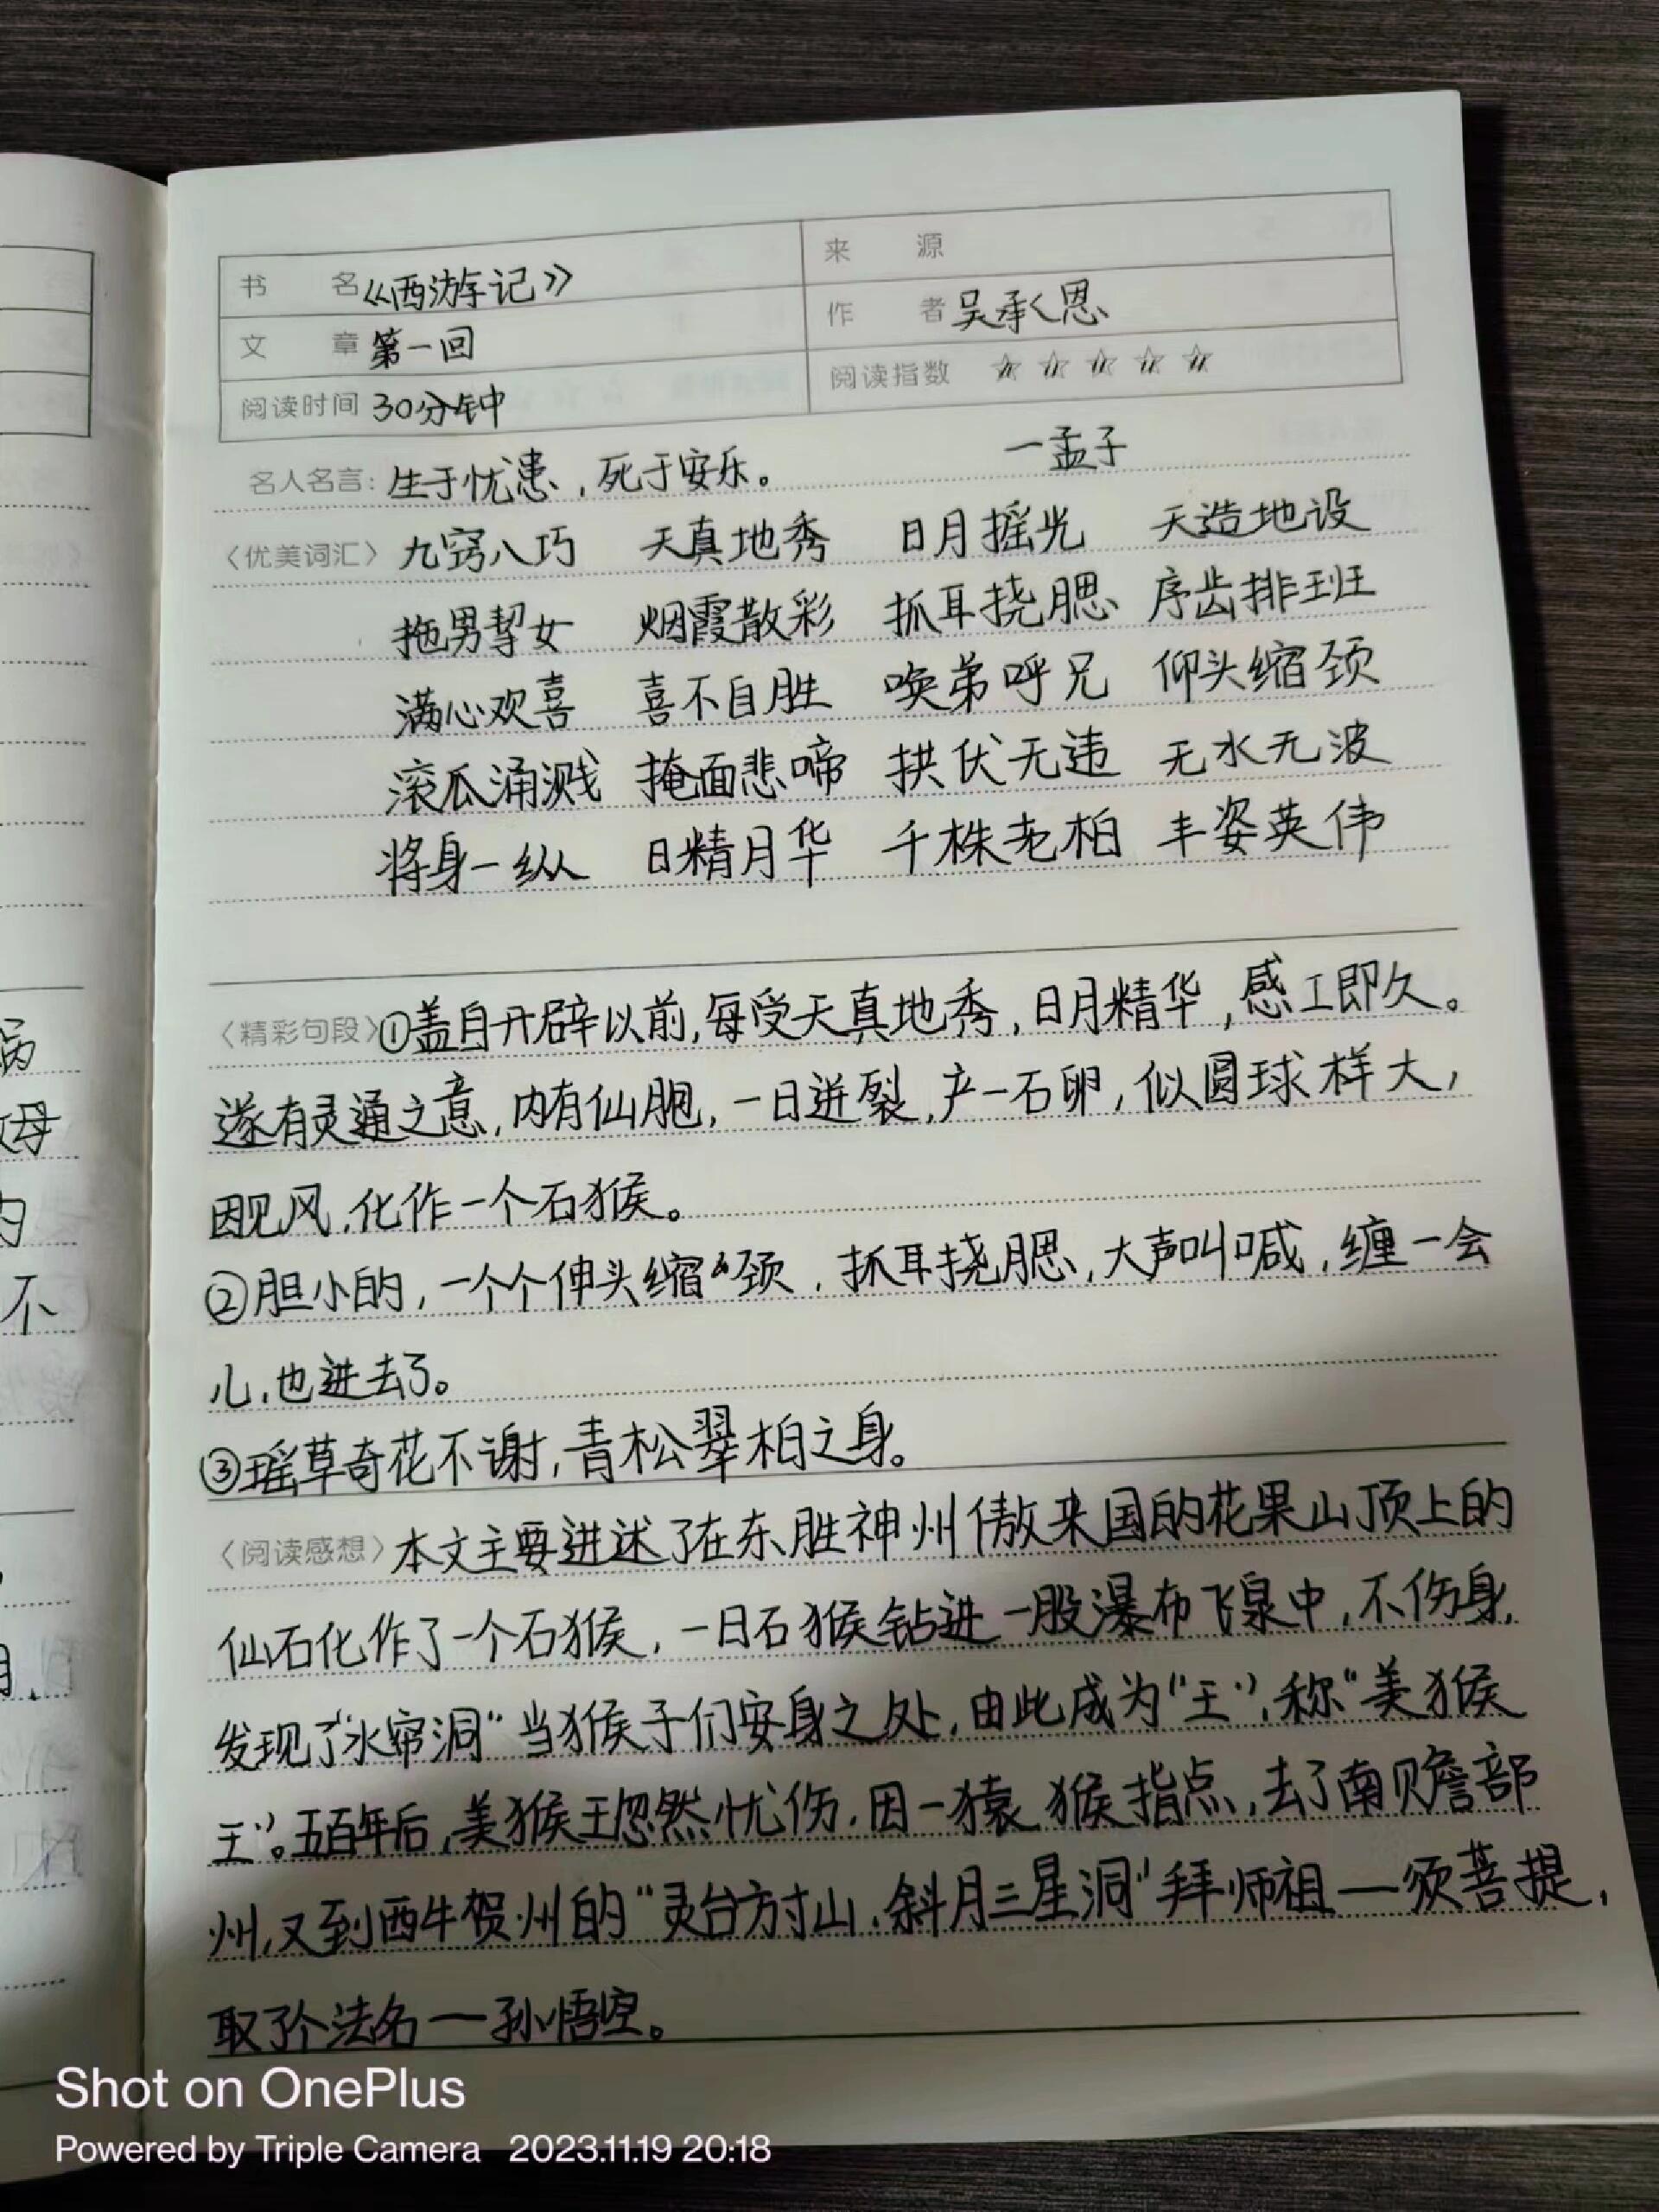 书名《西游记》 来源
文章 第一回 作者 吴承恩
阅读时间 30分钟 阅读指数 ☆☆☆☆☆
名人名言:生于忧患,死于安乐。 一孟子
〈优美词汇〉九窍八巧 天真地秀 日月摇光 天造地设
拖男挈女 烟霞散彩 抓耳挠腮 序齿排班
满心欢喜 喜不自胜 唤弟呼兄 仰头缩颈
滚瓜涌溅 掩面悲啼 拱伏无违 无水无波
将身一纵 日精月华 千株老柏 丰姿英伟
〈精彩句段〉①盖自开辟以前,每受天真地秀,日月精华,感工即久。
遂有灵通之意,内有仙胞,一日迸裂,产一石卵,似圆球样大,
因见风,化作一个石猴。
②胆小的,一个个伸头缩颈,抓耳挠腮,大声叫喊,缠一会
儿,也进去了。
③瑶草奇花不谢,青松翠柏之身。
〈阅读感想〉本文主要进述了在东胜神州傲来国的花果山顶上的
仙石化作了一个石猴,一日石猴钻进一股瀑布飞泉中,不伤身,
发现了"水帘洞"当猴子们安身之处,由此成为"王",称"美猴
王"。五百年后,美猴王忽然忧伤,因一猿猴指点,去了南赡部
州,又到西牛贺州的"灵台方寸山,斜月三星洞"拜师祖一须菩提,
取了个法名一孙悟空。
病
母
不
Shot on OnePlus
Powered by Triple Camera 2023.11.19 20:18